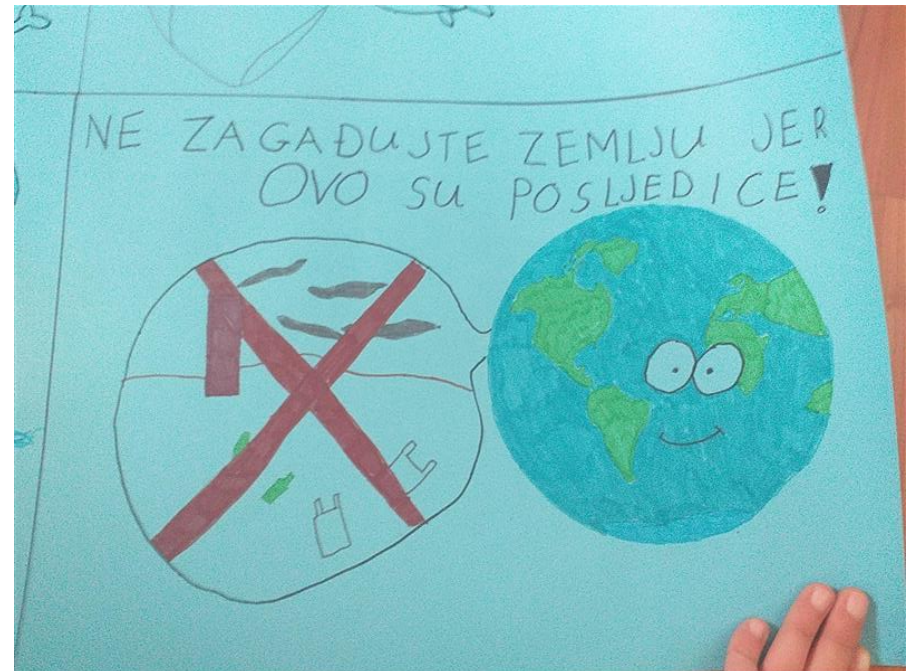 NE ZAGAĐUJTE ZEMLJU JER
OVO SU POSLJEDICE!